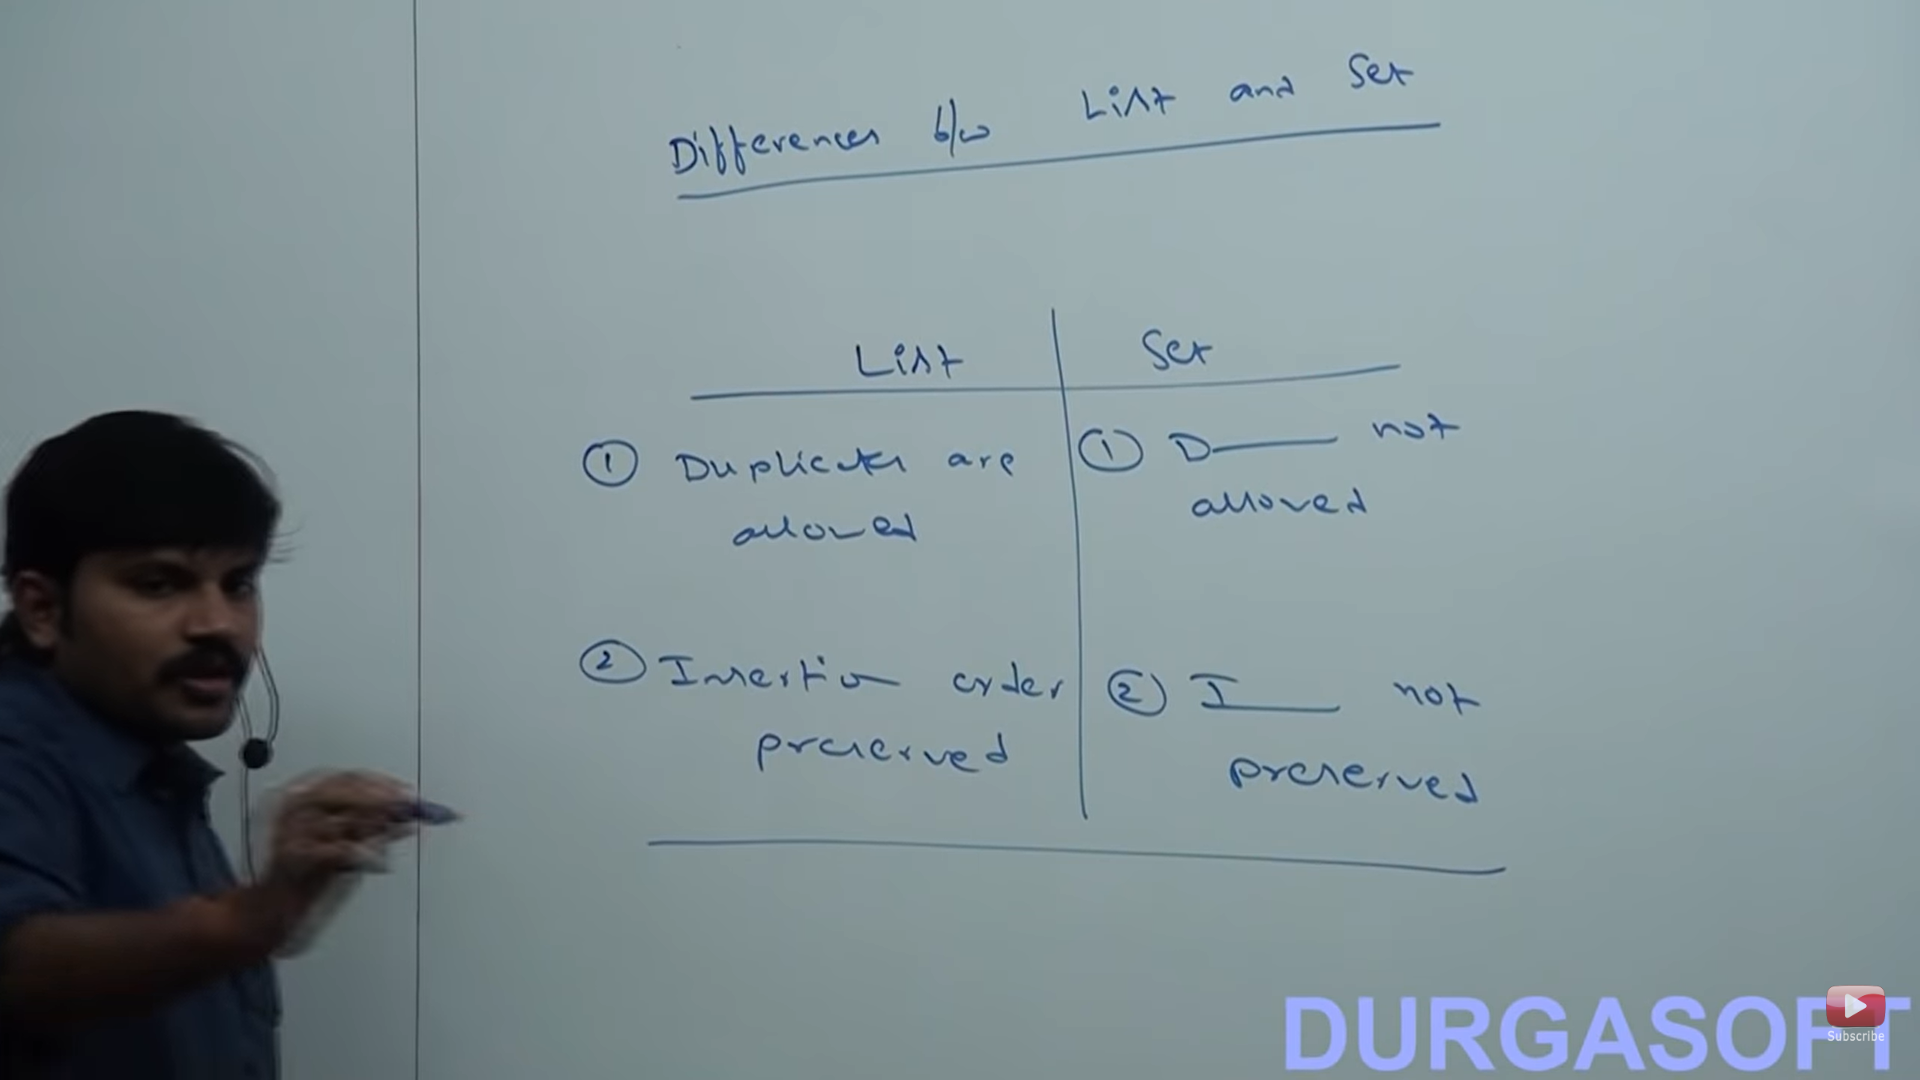 Differences b/w List and Set
List
Set
① Duplicates are
allowed
① D—— not
allowed
② Insertion order
preserved
② I—— not
preserved
DURGASOFT
Subscribe